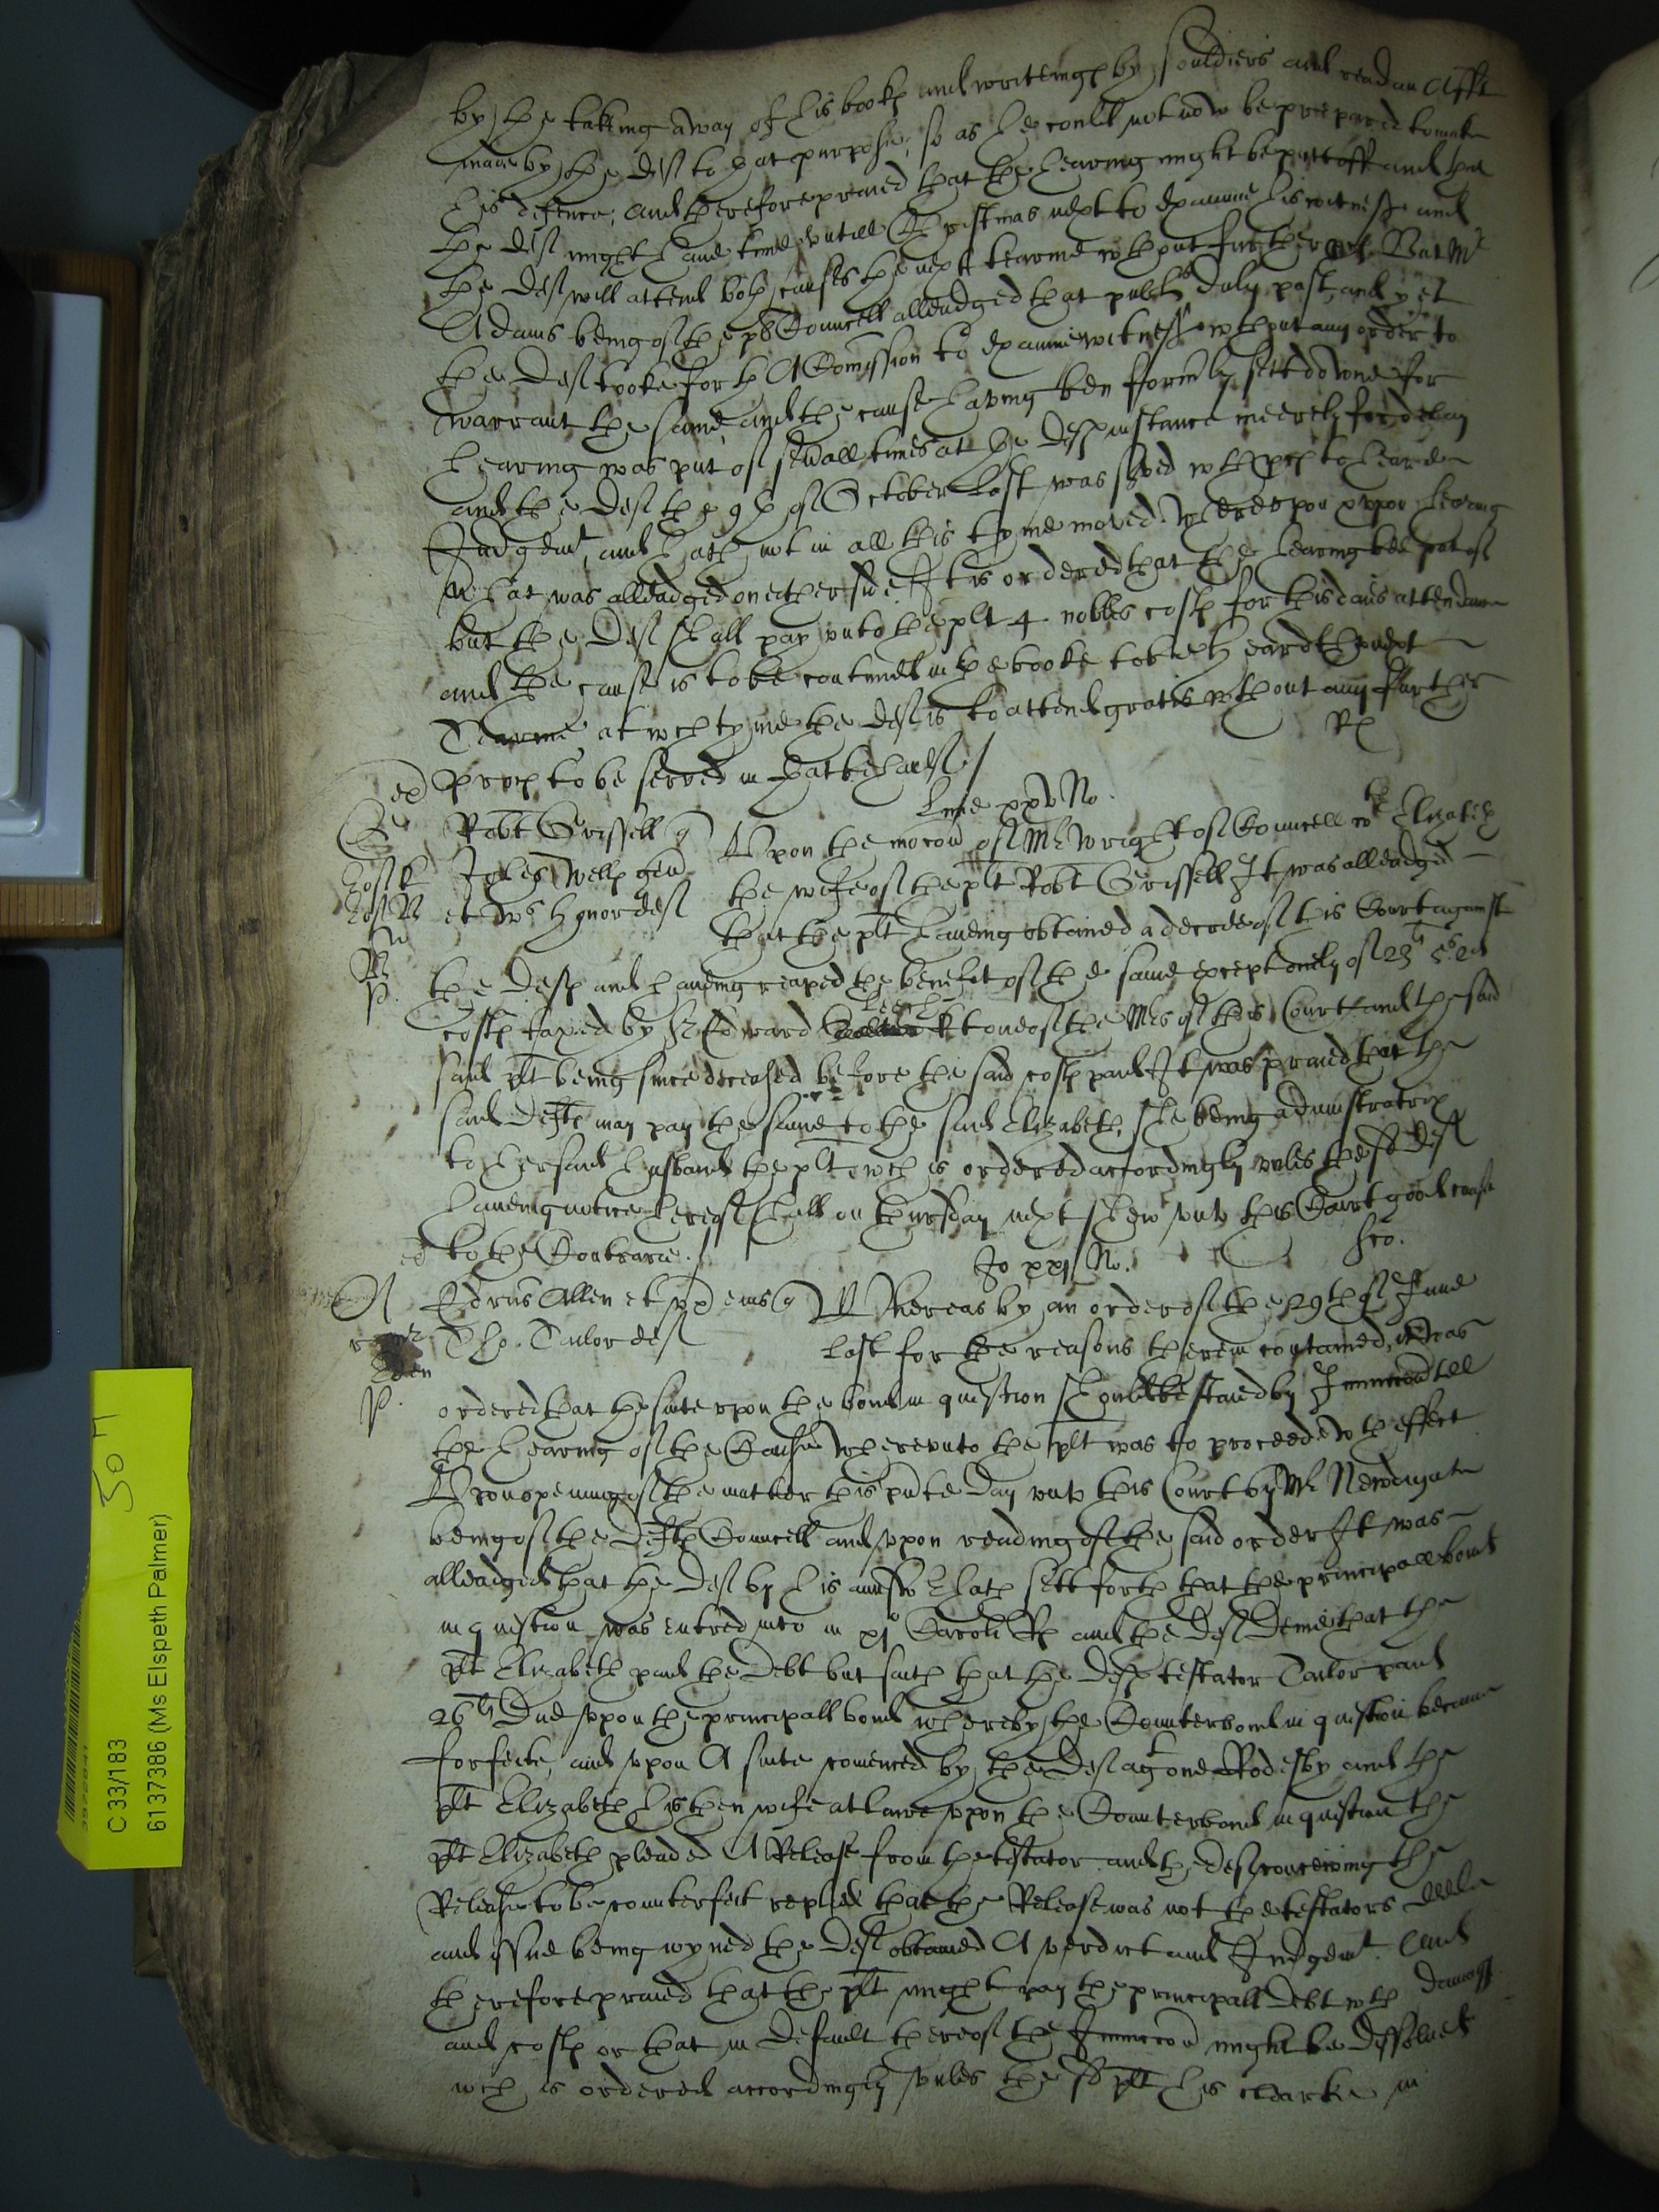 by the taking away of his books and writeings by souldiers and read an Afft
made by the deft to that purpose, so as he could not now be prepared to make
his defence, and therefore praied that the hearing might be putt off and that
the deft might have time untill Christmas next to examine his witnesses and
the deft will attend both causes the next tearme wthout further But Mr
Adams being of the pts Councell alleadged that publicn duly past, and yet
the Deft tooke forth A Comission to examine witnesses wthout any order to
warrant the same, and the cause having ben formerly sett downe for
hearing was put of sevrall times at the defts instance meerely for delay
and the Deft the 9th of October last was served wth pces to heare
Judgemt, and hath not in all this tyme moved. Whereupon uppon hearing
what was alleadged on either side It is ordered that the hearing bee put of
but the Deft shall pay unto the plt 4 nobles costs for this daies attendance
and the cause is to be continued in the booke to be heard the next
Tearme, at wch tyme the deft is to attend gratis wthout any further
proces to be served in that behalfe /
Rx
Lune xxv No.
Robt Grissell q
Johes Wells gen
et Dns Honor deft
Upon the mocon of Mr Wright of Councell wth Elizabeth
the wife of the plt Robt Grissell It was alleadged
that the plt haveing obtained a decree of this Court against
the Defts and haveing reaped the benefit of the same except onely of 23l 5s 2d
costs taxed by Sr Edward Leech kt one of the Mrs of this Court and the said
said plt being since deceased before the said costs paid It was praied that the
said Defts may pay the same to the said Elizabeth, she being administratrix
to her said husband the plt wch is ordered accordingly unles the sd deft
haveing notice hereof shall on thursday next shew unto this Court good cause
to the Contrary. /
Jo xxi No.
Edrus Allen et ux eius q
Tho. Tailor deft
Whereas by an order of the 29th of June
last for the reasons therein contained, it was
ordered that the suite upon the bond in question should be staied by Iniunccon till
the hearing of the Cause whereunto the plt was to proceede wth effect
Upon opening of the matter this pnte Day unto this Court by Mr Newdigate
being of the Defts Councell and upon reading of the said order It was
alleadged that the Deft by his answer hath sett forth that the principall bond
in question was entred into in xjo Caroli Rs and the Deft Denies that the
plt Elizabeth paid the Debt but saith that the Defts testator Tailor paid
26li Due upon the principall bond whereby the Counterbond in question became
forfeite, and upon A suite comenced by the Deft agt one Rodesby and the
plt Elizabeth his then wife at lawe upon the Counterbond in question the
plt Elizabeth pleaded A Release from the testator and the deft conceiving the
Release to be counterfeit replied that the Release was not the testators deede
and issue being joyned the Deft obtained A verdict and Judgemt. And
therefore praied that the plt might pay the principall Debt wth damages
and costs or that in default thereof the Iniunccon might be dissolved
wch is ordered accordingly unles the sd plt his clarke in
C 33/183
6137386 (Ms Elspeth Palmer)